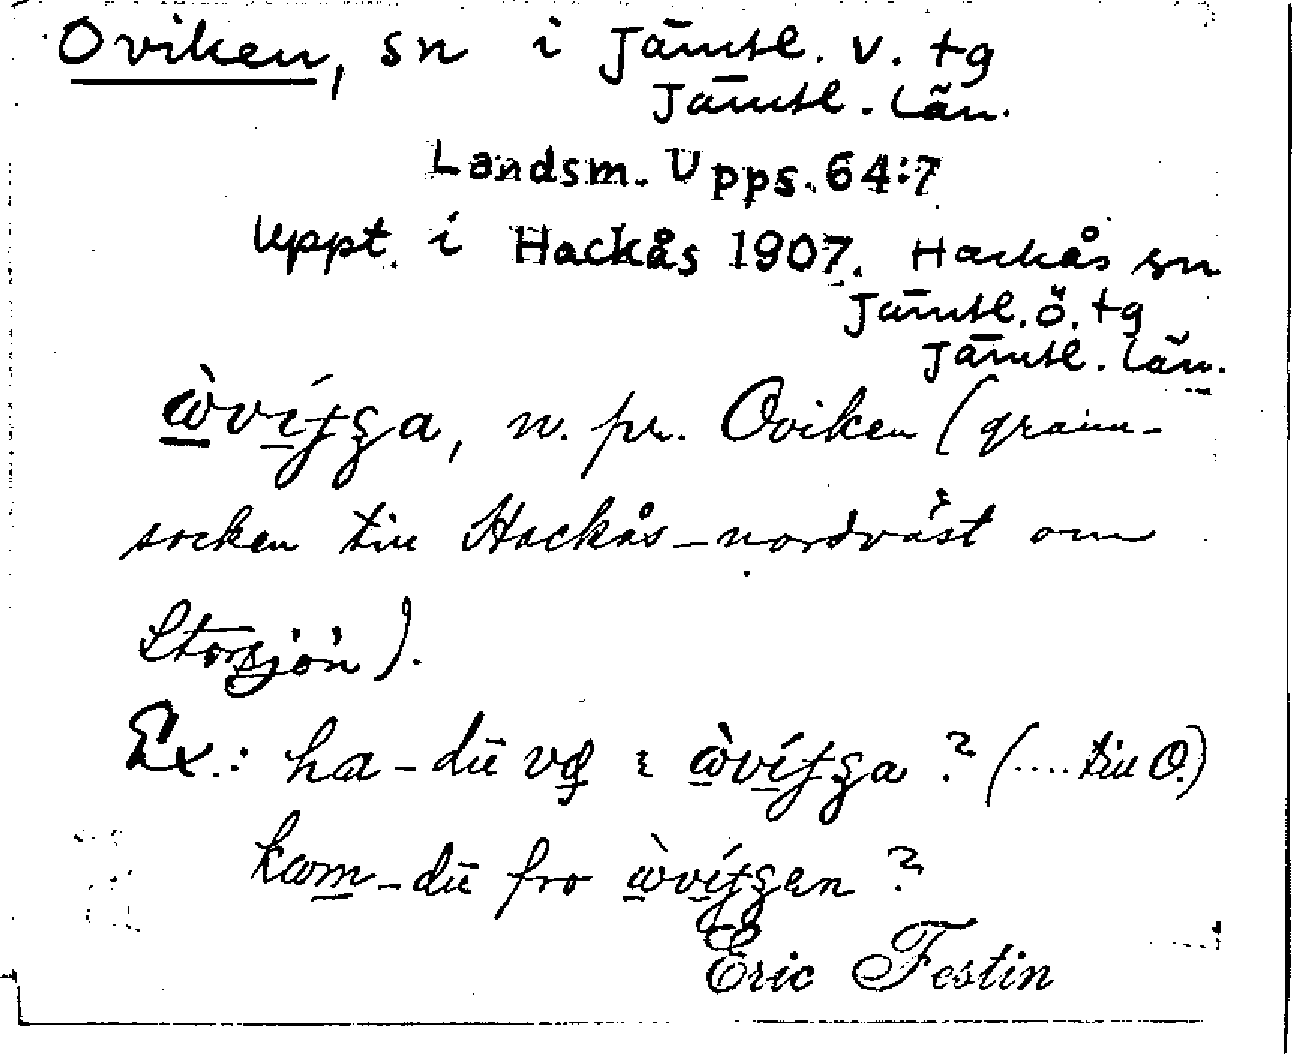 Oviken, sn i Jämtl. v. tg
Jämtl. län.
Landsm. Upps. 64:7
Uppt. i Hackås 1907. Hackås sn
Jämtl. ö. tg
Jämtl. län.
n. pr. Oviken (gränn-
socken till Hackås – nordväst om
Storsjön).
Ex.: ha-dū ? (.... till O.)
-dū fro ?
Eric Festin